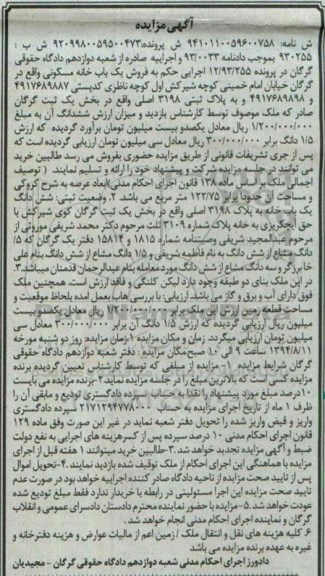 آگهی مزایده
ش نامه: ۹۴۱۰۱۱۰۰۵۹۶۰۰۷۵۸ ش پرونده: ۹۲۰۹۹۸۰۰۵۹۵۰۰۴۷۳ ش ب :
۹۳۰۲۵۵ بموجب دادنامه ۹۳/۰۰۳۳ و اجراییه صادره از شعبه دوازدهم دادگاه حقوقی
گرگان در پرونده ۱۲/۹۳/۲۵۵ اجرایی حکم به فروش یک باب خانه مسکونی واقع در
گرگان خیابان امام خمینی کوچه شیرکش اول کوچه ناظری کدپستی ۴۹۱۷۶۸۹۸۸۷
و ۴۹۱۷۶۸۹۸۹۸ و به پلاک ثبتی ۳۱۹۸ اصلی واقع در بخش یک ثبت گرگان
صادر که ملک موصوف توسط کارشناس بازدید و میزان ارزش ششدانگ آن به مبلغ
۱/۲۰۰/۰۰۰/۰۰۰ ریال معادل یکصدو بیست میلیون تومان برآورد گردیده که ارزش
۱/۵ دانگ برابر ۳۰۰/۰۰۰/۰۰۰ ریال معادل سی میلیون تومان ارزیابی گردیده است که
پس از جری تشریفات قانونی از طریق مزایده حضوری بفروش می رسد طالبین خرید
می توانند در جلسه مزایده شرکت و پیشنهاد خود را ارائه و تسلیم نمایند ( توصیف
اجمالی ملک برابر ماده ۱۳۸ قانون اجرای احکام مدنی) ابعاد عرصه به شرح کروکی
و مساحت آن حدودا برابر ۱۲۲/۷۵ متر مربع می باشد ۲.وضعیت ثبتی: شش دانگ
یک باب خانه به پلاک ۳۱۹۸ اصلی واقع در بخش یک ثبت گرگان کوی شیرکش با
حق آبچکریزی به خانه پلاک شماره ۳۱۰۹ ثلث مرحوم دکتر محمد شریفی موروثی از
مرحوم عبدالمجید شریفی وصیتنامه شماره ۱۸۱۵ و ۱۵۸۱۴ دفتر یک گرگان که ۱/۵
دانگ مشاع از شش دانگ به نام فاطمه شریفی و ۱/۵ دانگ مشاع از شش دانگ بنام علی
خابرزگر و سه دانگ مشاع از شش دانگ مورد معامله بنام عبدالرحمان قدمنان میباشد.۳.
در این ملک بنای دو طبقه وجود دارد لیکن کلنگی و فاقد ارزش است. همچنین ملک
فوق دارای آب و برق و گاز می باشد. ارزیابی: با بررسی هاب بعمل آمده بلحاظ موقعیت و
مساحت قطعه زمین ارزش ملک برابر ۱/۲۰۰/۰۰۰/۰۰۰ ریال معادل یکصدو بیست
میلیون ریال ارزیابی گردیده که ارزش ۱/۵ دانگ آن برابر ۳۰۰/۰۰۰/۰۰۰ معادل سی
میلیون تومان ارزیابی میگردد. زمان و مکان مزایده ۱-زمان مزایده: روز دو شنبه مورخه
۱۳۹۴/۸/۱۱ ساعت ۹ الی ۱۰ صبح مکان مزایده : دفتر شعبه دوازدهم دادگاه حقوقی
گرگان شرایط مزایده ۱- مزایده از مبلغی که توسط کارشناس تعیین گردیده برنده
مزایده کسی است که بالاترین مبلغ را در جلسه مزایده نماید ۲-برنده مزایده می بایست
۱۰ درصد مبلغ مورد پیشنهاد را نقدا به حساب سپرده دادگستری تودیع و مابقی آن را
ظرف ۱ ماه از تاریخ اجرای مزایده به حساب ۲۱۷۱۲۹۴۷۷۸۰۰۰ سپرده دادگستری
واریز و قبض واریز شده را تحویل دفتر شعبه نماید در غیر این صورت وفق ماده ۱۲۹
قانون اجرای احکام مدنی ۱۰ درصد سپرده پس از کسر هزینه های اجرایی به نفع دولت
ضبط و آگهی مزایده تجدید خواهد شد. ۳-طالبین خرید میتوانند ۱ هفته قبل از اجرای
مزایده با هماهنگی این اجرای احکام از ملک توقیف شده بازدید نمایند.۴-تحویل اموال
پس از تایید صحت مزایده از ناحیه دادگاه صادر کننده اجراییه خواهد بود در صورت عدم
تایید صحت مزایده این اجرا مسئولیتی در رابطه با خریدار ندارد فقط مبلغ تودیع شده
عودت خواهد شد.۵-مزایده با حضور نماینده محترم دادستان دادسرای عمومی و انقلاب
گرگان و نماینده اجرای احکام مدنی انجام خواهد شد.
۶. کلیه هزینه های نقل و انتقال ملک / زمین اعم از مالیات عوارض و هزینه دفترخانه و
غیره به عهده برنده مزایده می باشد
دادورز اجرای احکام مدنی شعبه دوازدهم دادگاه حقوقی گرگان - مجیدیان